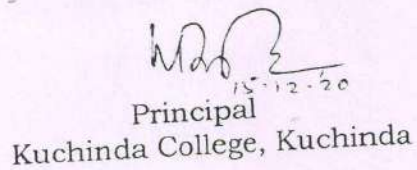 15.12.20
Principal
Kuchinda College, Kuchinda